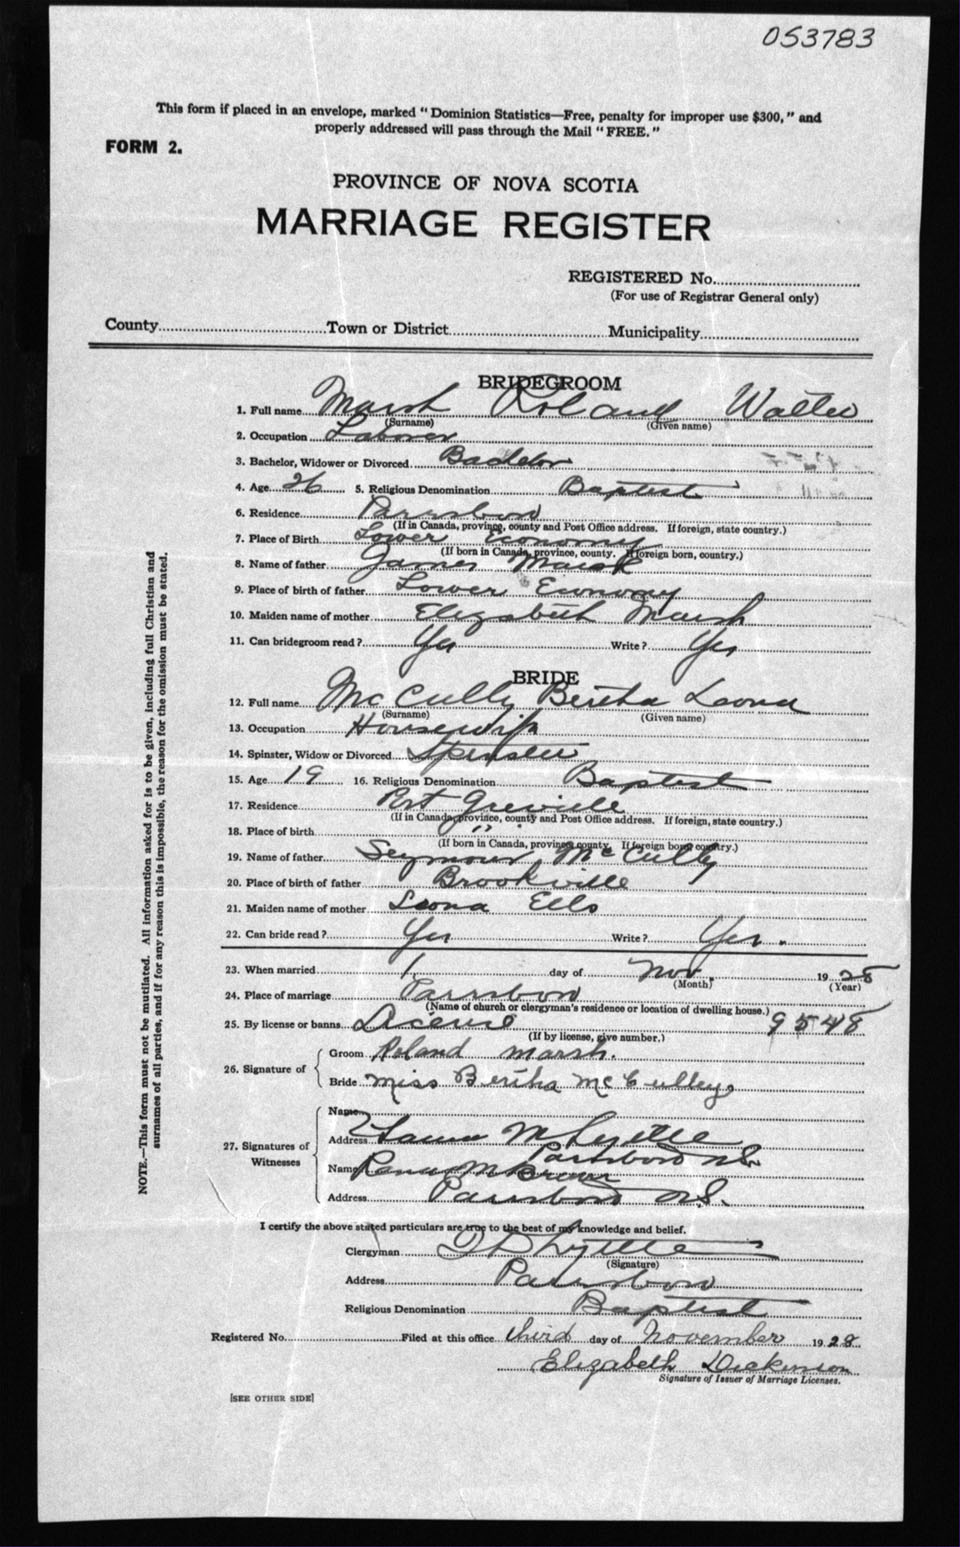 053783
This form if placed in an envelope, marked "Dominion Statistics—Free, penalty for improper use $300," and
properly addressed will pass through the Mail "FREE."
FORM 2.
PROVINCE OF NOVA SCOTIA
MARRIAGE REGISTER
REGISTERED No.
(For use of Registrar General only)
County Town or District Municipality
BRIDEGROOM
1. Full name Marsh Roland Walter
(Surname) (Given name)
2. Occupation Laborer
3. Bachelor, Widower or Divorced Bachelor
4. Age 26 5. Religious Denomination Baptist
6. Residence Parrsboro
(If in Canada, province, county and Post Office address. If foreign, state country.)
7. Place of Birth Lower Economy
(If born in Canada, province, county. If foreign born, country.)
8. Name of father James Marsh
9. Place of birth of father Lower Economy
10. Maiden name of mother Elizabeth Marsh
11. Can bridegroom read? Yes Write? Yes
BRIDE
12. Full name McCully Bertha Leona
(Surname) (Given name)
13. Occupation Housewife
14. Spinster, Widow or Divorced Spinster
15. Age 19 16. Religious Denomination Baptist
17. Residence Port Greville
(If in Canada, province, county and Post Office address. If foreign, state country.)
18. Place of birth "
(If born in Canada, province, county. If foreign born country.)
19. Name of father Seymour McCully
20. Place of birth of father Brookville
21. Maiden name of mother Leona Ells
22. Can bride read? Yes Write? Yes.
23. When married 1 day of Nov. 1928
(Month) (Year)
24. Place of marriage Parrsboro
(Name of church or clergyman's residence or location of dwelling house.)
25. By license or banns License 9548
(If by license, give number.)
26. Signature of
Groom Roland Marsh.
Bride Miss Bertha McCulley
27. Signatures of Witnesses
Name
Address M Lyttle
Parrsboro N.S.
Name
Address Parrsboro N.S.
I certify the above stated particulars are true to the best of my knowledge and belief.
Clergyman Lyttle
(Signature)
Address Parrsboro
Religious Denomination Baptist
Registered No. Filed at this office third day of November 1928.
Elizabeth Dickinson
Signature of Issuer of Marriage Licenses.
[SEE OTHER SIDE]
NOTE.—This form must not be mutilated. All information asked for is to be given, including full Christian and
surnames of all parties, and if for any reason this is impossible, the reason for the omission must be stated.